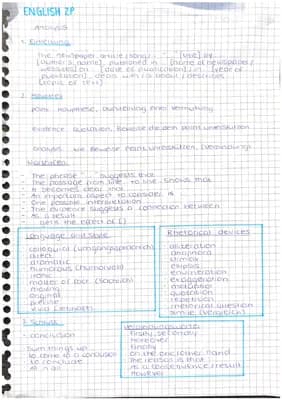 ENGLISH ZP
ANALYSIS
1. Einleitung
The newspaper article / song / "... " [title] by
[author's name], published in [name of newspaper/
website] on [date of publication] in [year of
publication], deals with / is about / describes
[topic of text]
2. Hauptteil
point
evidence
analysis
- The phrase "..." suggests that
- The passage from line .. to line .. shows that
- It becomes clear that
- An important aspect to consider is
- One possible interpretation
- The evidence suggests a connection between
- As a result
gets the effect of []
Language and style
colloquial (umgangssprachlich)
direct
dramatic
humorous (humorvoll)
ironic
matter of fact (sachlich)
moving
original
precise
vivid (lebhaft)
Rhetorical devices
- alliteration
- anaphora
- climax
- ellipsis
- enumeration
- exaggeration
- metaphor
- quotation
- repetition
- rhetorical question
- simile (Vergleich)
3. Schluss
- conclusion
- Sum things up
- to come to a conclusion
- to conclude
- all in all
firstly, secondly
moreover
finally
on the one/other hand
the reason is that
as a consequence / result
however